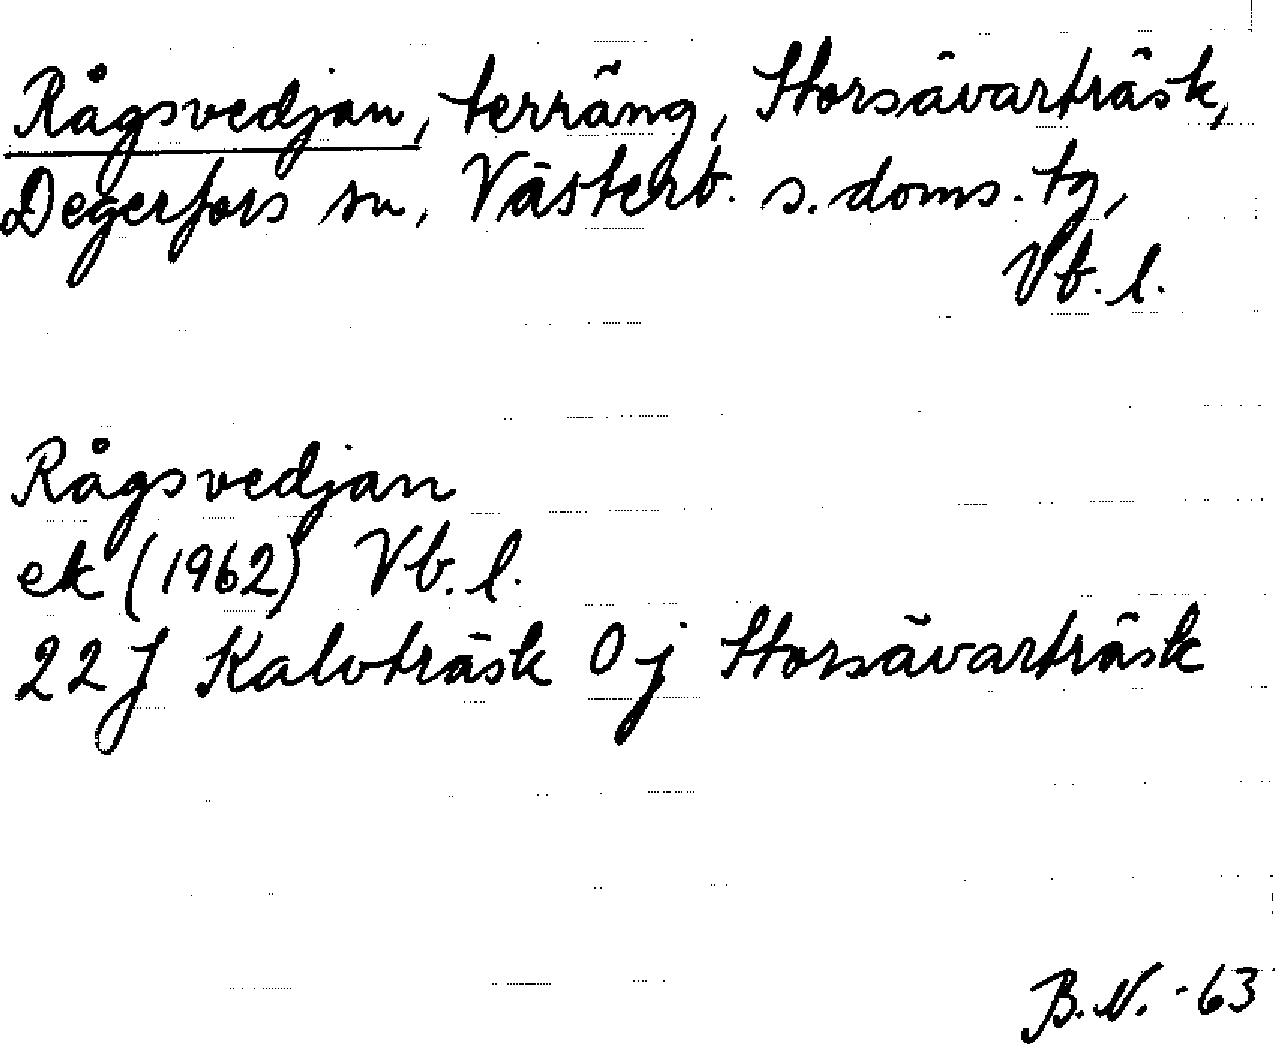 Rågsvedjan, terräng, Storsävarträsk,
Degerfors sn, Västerb. s. doms. tg,
Vb. l.
Rågsvedjan
ek (1962) Vb. l.
22J Kalvträsk 0j Storsävarträsk
B.N. -63